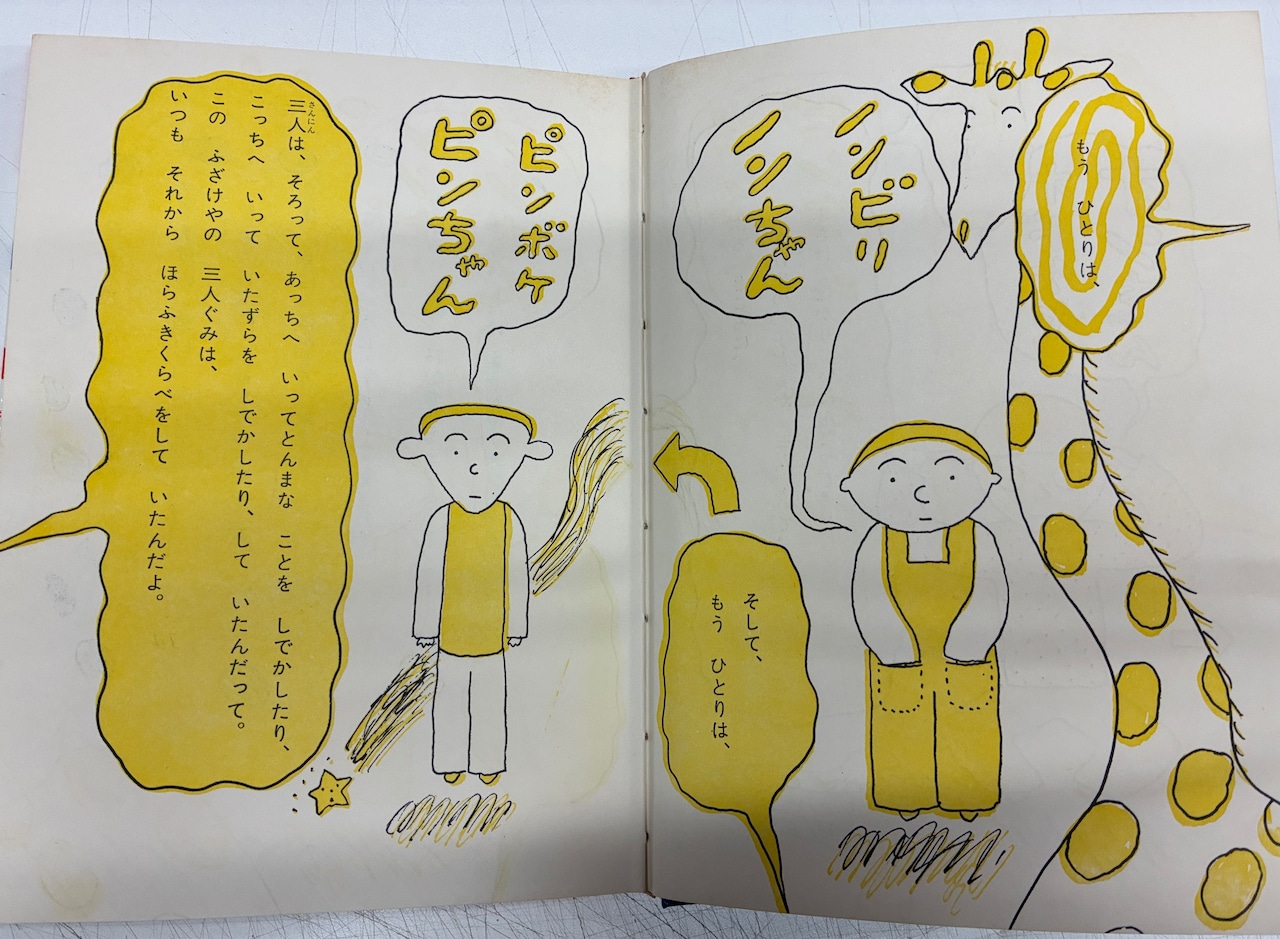 もう ひとりは、
ノンビリ
ノンちゃん
そして、
もう ひとりは、
ピンボケ
ピンちゃん
三人は、そろって、あっちへ いってとんまな ことを しでかしたり、
さんにん
こっちへ いって いたずらを しでかしたり、して いたんだって。
この ふざけやの 三人ぐみは、
いつも それから ほらふきくらべをして いたんだよ。